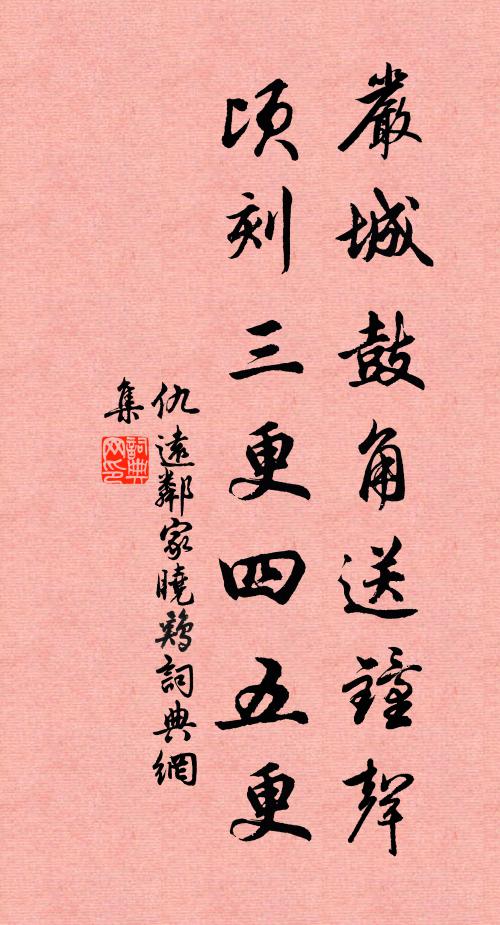 嚴城鼓角送鐘聲
頃刻三更四五更
仇遠鄰家曉鷄詞典網
集
詞典網印